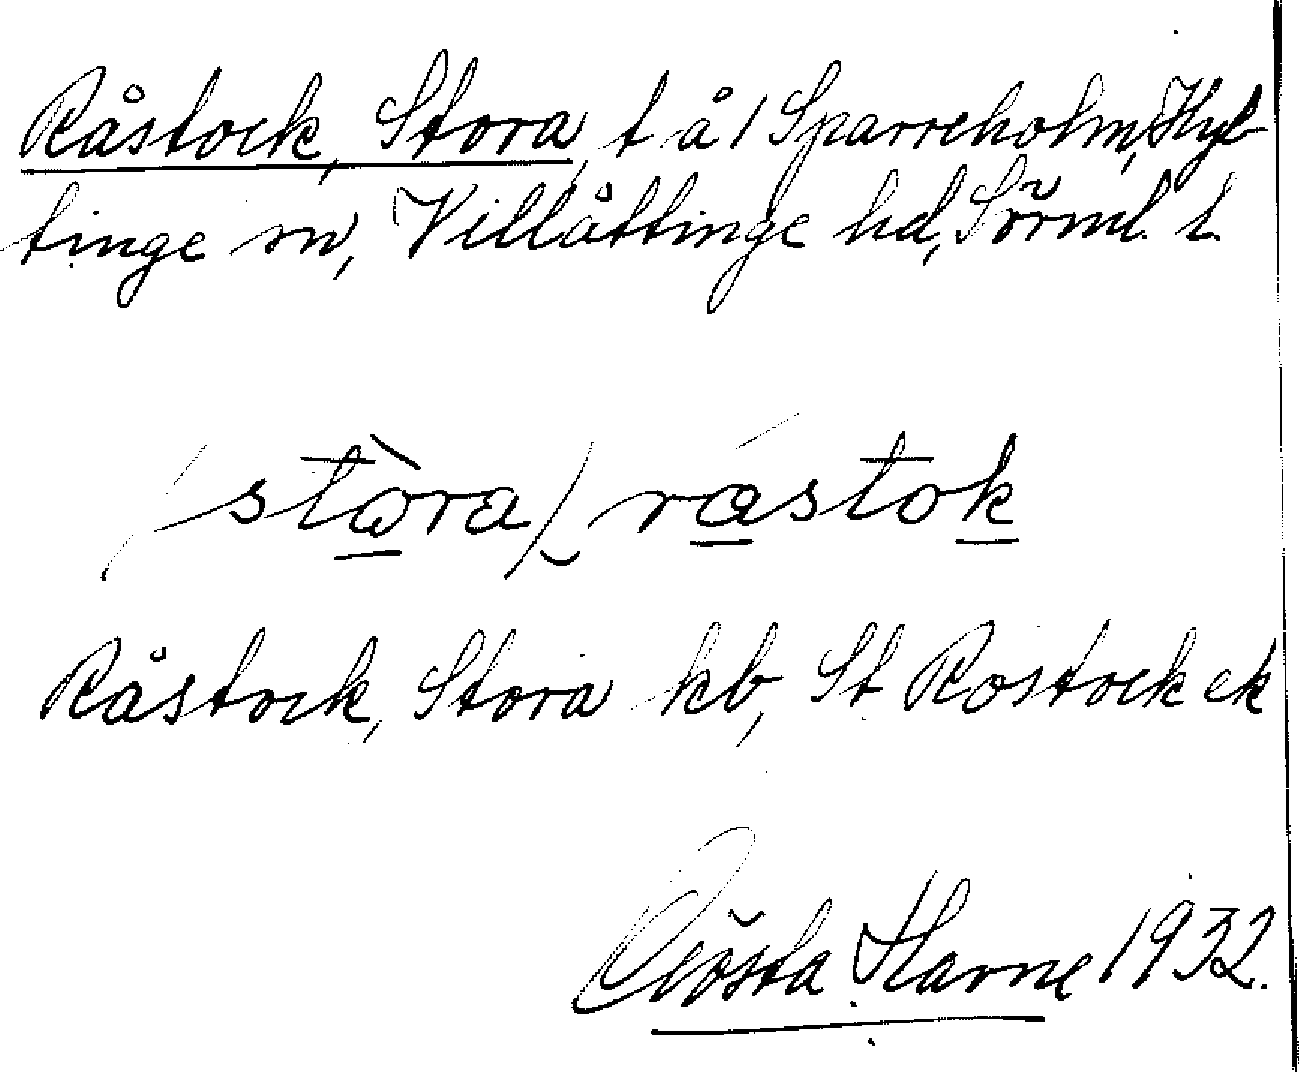 Råstock, Stora, t å 1 Sparreholm, Hyl-
tinge sn, Villåttinge hd, Sörml. l.
(stòra) råstok
Råstock, Stora kb, St Rostock ek
Gösta Harne 1932.